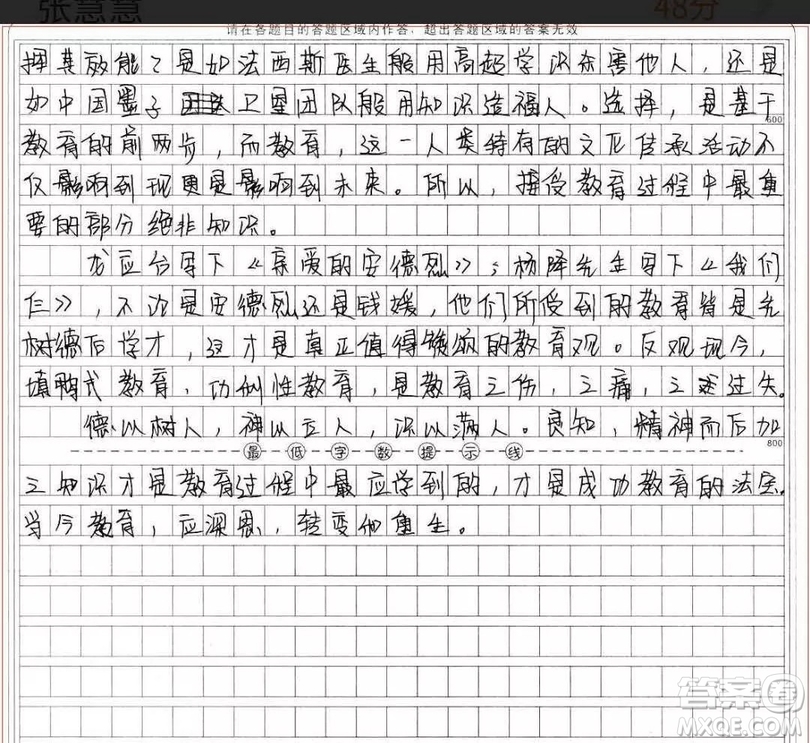 张慧慧 48分
请在各题目的答题区域内作答,超出答题区域的答案无效
挥其效能?是如法西斯医生般用高超学识杀害他人,还是
如中国墨子卫星团队般用知识造福人。选择,是基于
600
教育的前两步,而教育,这一人类特有的文化传承活动不
仅影响到现更是影响到未来。所以,接受教育过程中最重
要的部分绝非知识。
龙应台写下《亲爱的安德烈》;杨绛先生写下《我们
仨》,不论是安德烈还是钱媛,他们所受到的教育皆是先
树德后学才,这才是真正值得颂的教育观。反观现今,
填鸭式教育,功利性教育,是教育之伤,之痛,之过失。
德以树人,神以立人,识以满人。良知,精神而后加
800
最低字数提示线
之知识才是教育过程中最应学到的,才是成功教育的法宝。
当今教育,应深思,转变他重生。
答案卷
MXQE.COM